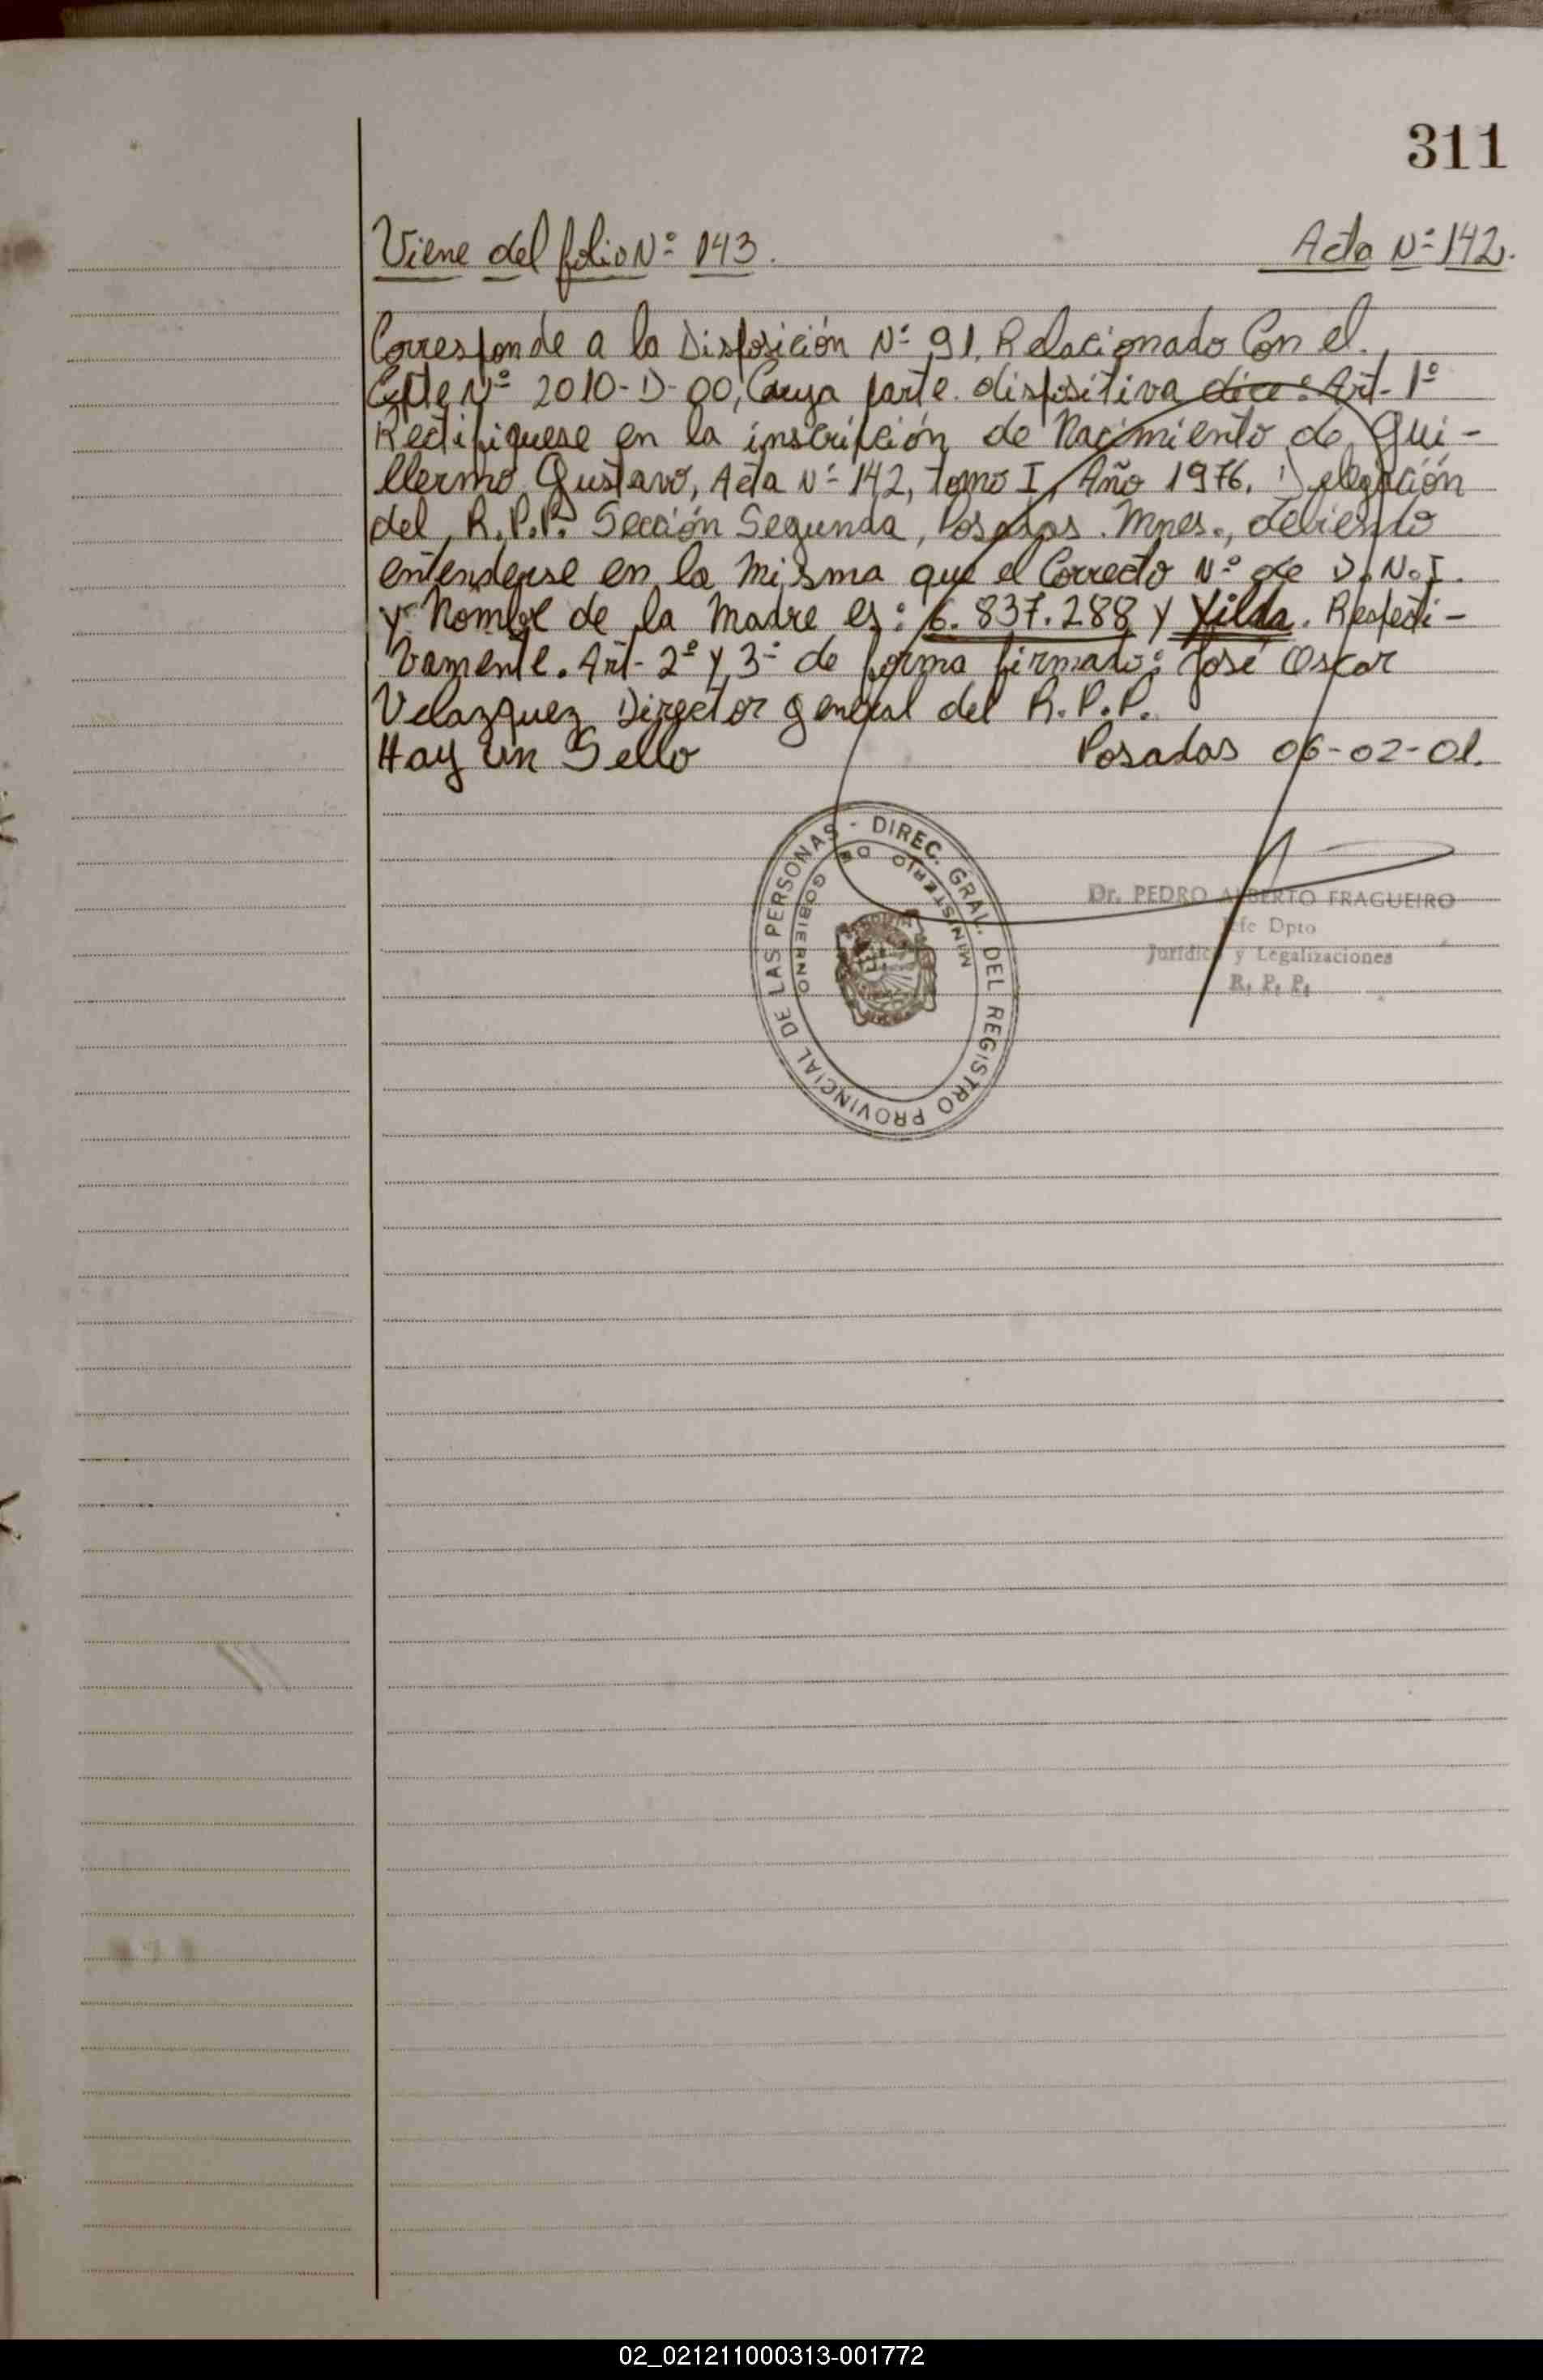 311
Viene del folio Nº 143. Acta Nº 142.
Corresponde a la Disposición Nº 91. Relacionado Con el.
Expte Nº 2010-D-00, Cuya parte dispositiva dice: Art- 1º
Rectifiquese en la inscripción de Nacimiento de Gui-
llermo Gustavo, Acta Nº 142, tomo I, Año 1976. Delegación
del R.P.P. Sección Segunda, Posadas. Mnes., debiendo
entenderse en la misma que el Correcto Nº de D.N.I.
y Nombre de la Madre es: 6.837.288 y Yilda. Respecti-
vamente. Art- 2º y 3º de forma firmado: José Oscar
Velazquez Director general del R.P.P.
Hay un Sello Posadas 06-02-01.
DIREC. GRAL. DEL REGISTRO PROVINCIAL DE LAS PERSONAS -
MINISTERIO DE GOBIERNO
Dr. PEDRO ALBERTO FRAGUEIRO
Jefe Dpto
Jurídico y Legalizaciones
R. P. P.
02_021211000313-001772